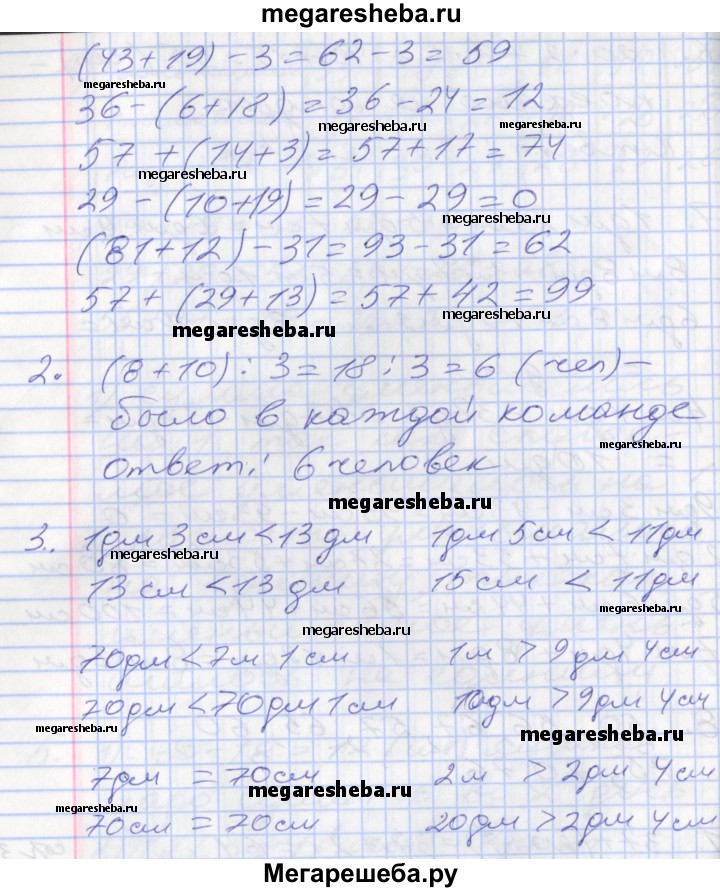 megaresheba.ru
(43+19)-3=62-3=59
megaresheba.ru
36-(6+18)=36-24=12
megaresheba.ru
megaresheba.ru
57+(14+3)=57+17=74
megaresheba.ru
29-(10+19)=29-29=0
megaresheba.ru
(81+12)-31=93-31=62
57+(29+13)=57+42=99
megaresheba.ru
megaresheba.ru
2. (8+10):3=18:3=6 (чел)-
было в каждой команде
megaresheba.ru
ответ: 6 человек
megaresheba.ru
3. 1дм 3см<13дм 1дм 5см<11дм
megaresheba.ru
13см<13дм 15см<11дм
megaresheba.ru
megaresheba.ru
70дм<7м 1см 1м>9дм 4см
70дм<70дм 1см 10дм>9дм 4см
megaresheba.ru
megaresheba.ru
7дм=70см 2м>2дм 4см
megaresheba.ru
megaresheba.ru
70см=70см 20дм>2дм 4см
megaresheba.ru
Мегарешеба.ру